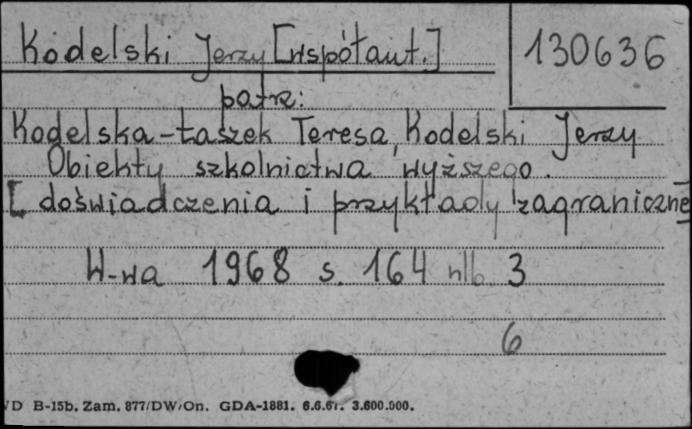 Kodelski Jerzy [współaut.]
130636
patrz:
Kodelska-Łaszek Teresa, Kodelski Jerzy
Obiekty szkolnictwa wyższego.
[doświadczenia i przykłady zagraniczne]
W-wa 1968 s. 164 nlb. 3
6
D B-15b. Zam. 877/DW/On. GDA-1881. 6.6.67. 3.600.000.